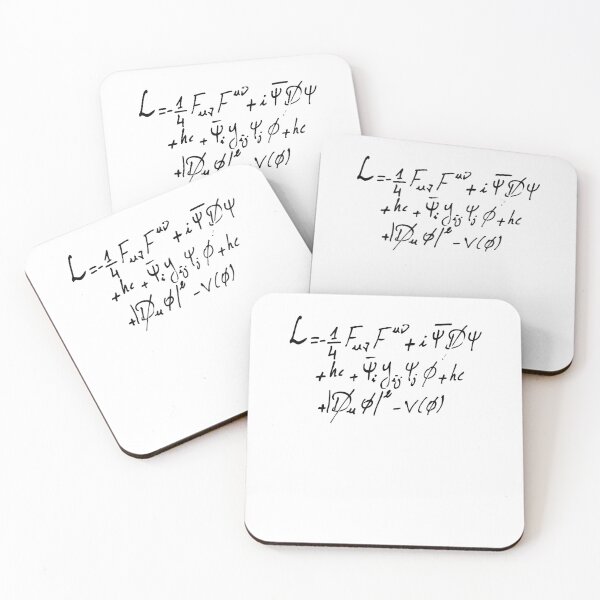 L = -1/4 Fμν F^μν + i Ψ̄ D̸ Ψ
+ hc + Ψ̄i yij Ψj ϕ + hc
+ |D̸μ ϕ|² - V(ϕ)
L = -1/4 Fμν F^μν + i Ψ̄ D̸ Ψ
+ hc + Ψ̄i yij Ψj ϕ + hc
+ |D̸μ ϕ|² - V(ϕ)
L = -1/4 Fμν F^μν + i Ψ̄ D̸ Ψ
+ hc + Ψ̄i yij Ψj ϕ + hc
+ |D̸μ ϕ|² - V(ϕ)
L = -1/4 Fμν F^μν + i Ψ̄ D̸ Ψ
+ hc + Ψ̄i yij Ψj ϕ + hc
+ |D̸μ ϕ|² - V(ϕ)